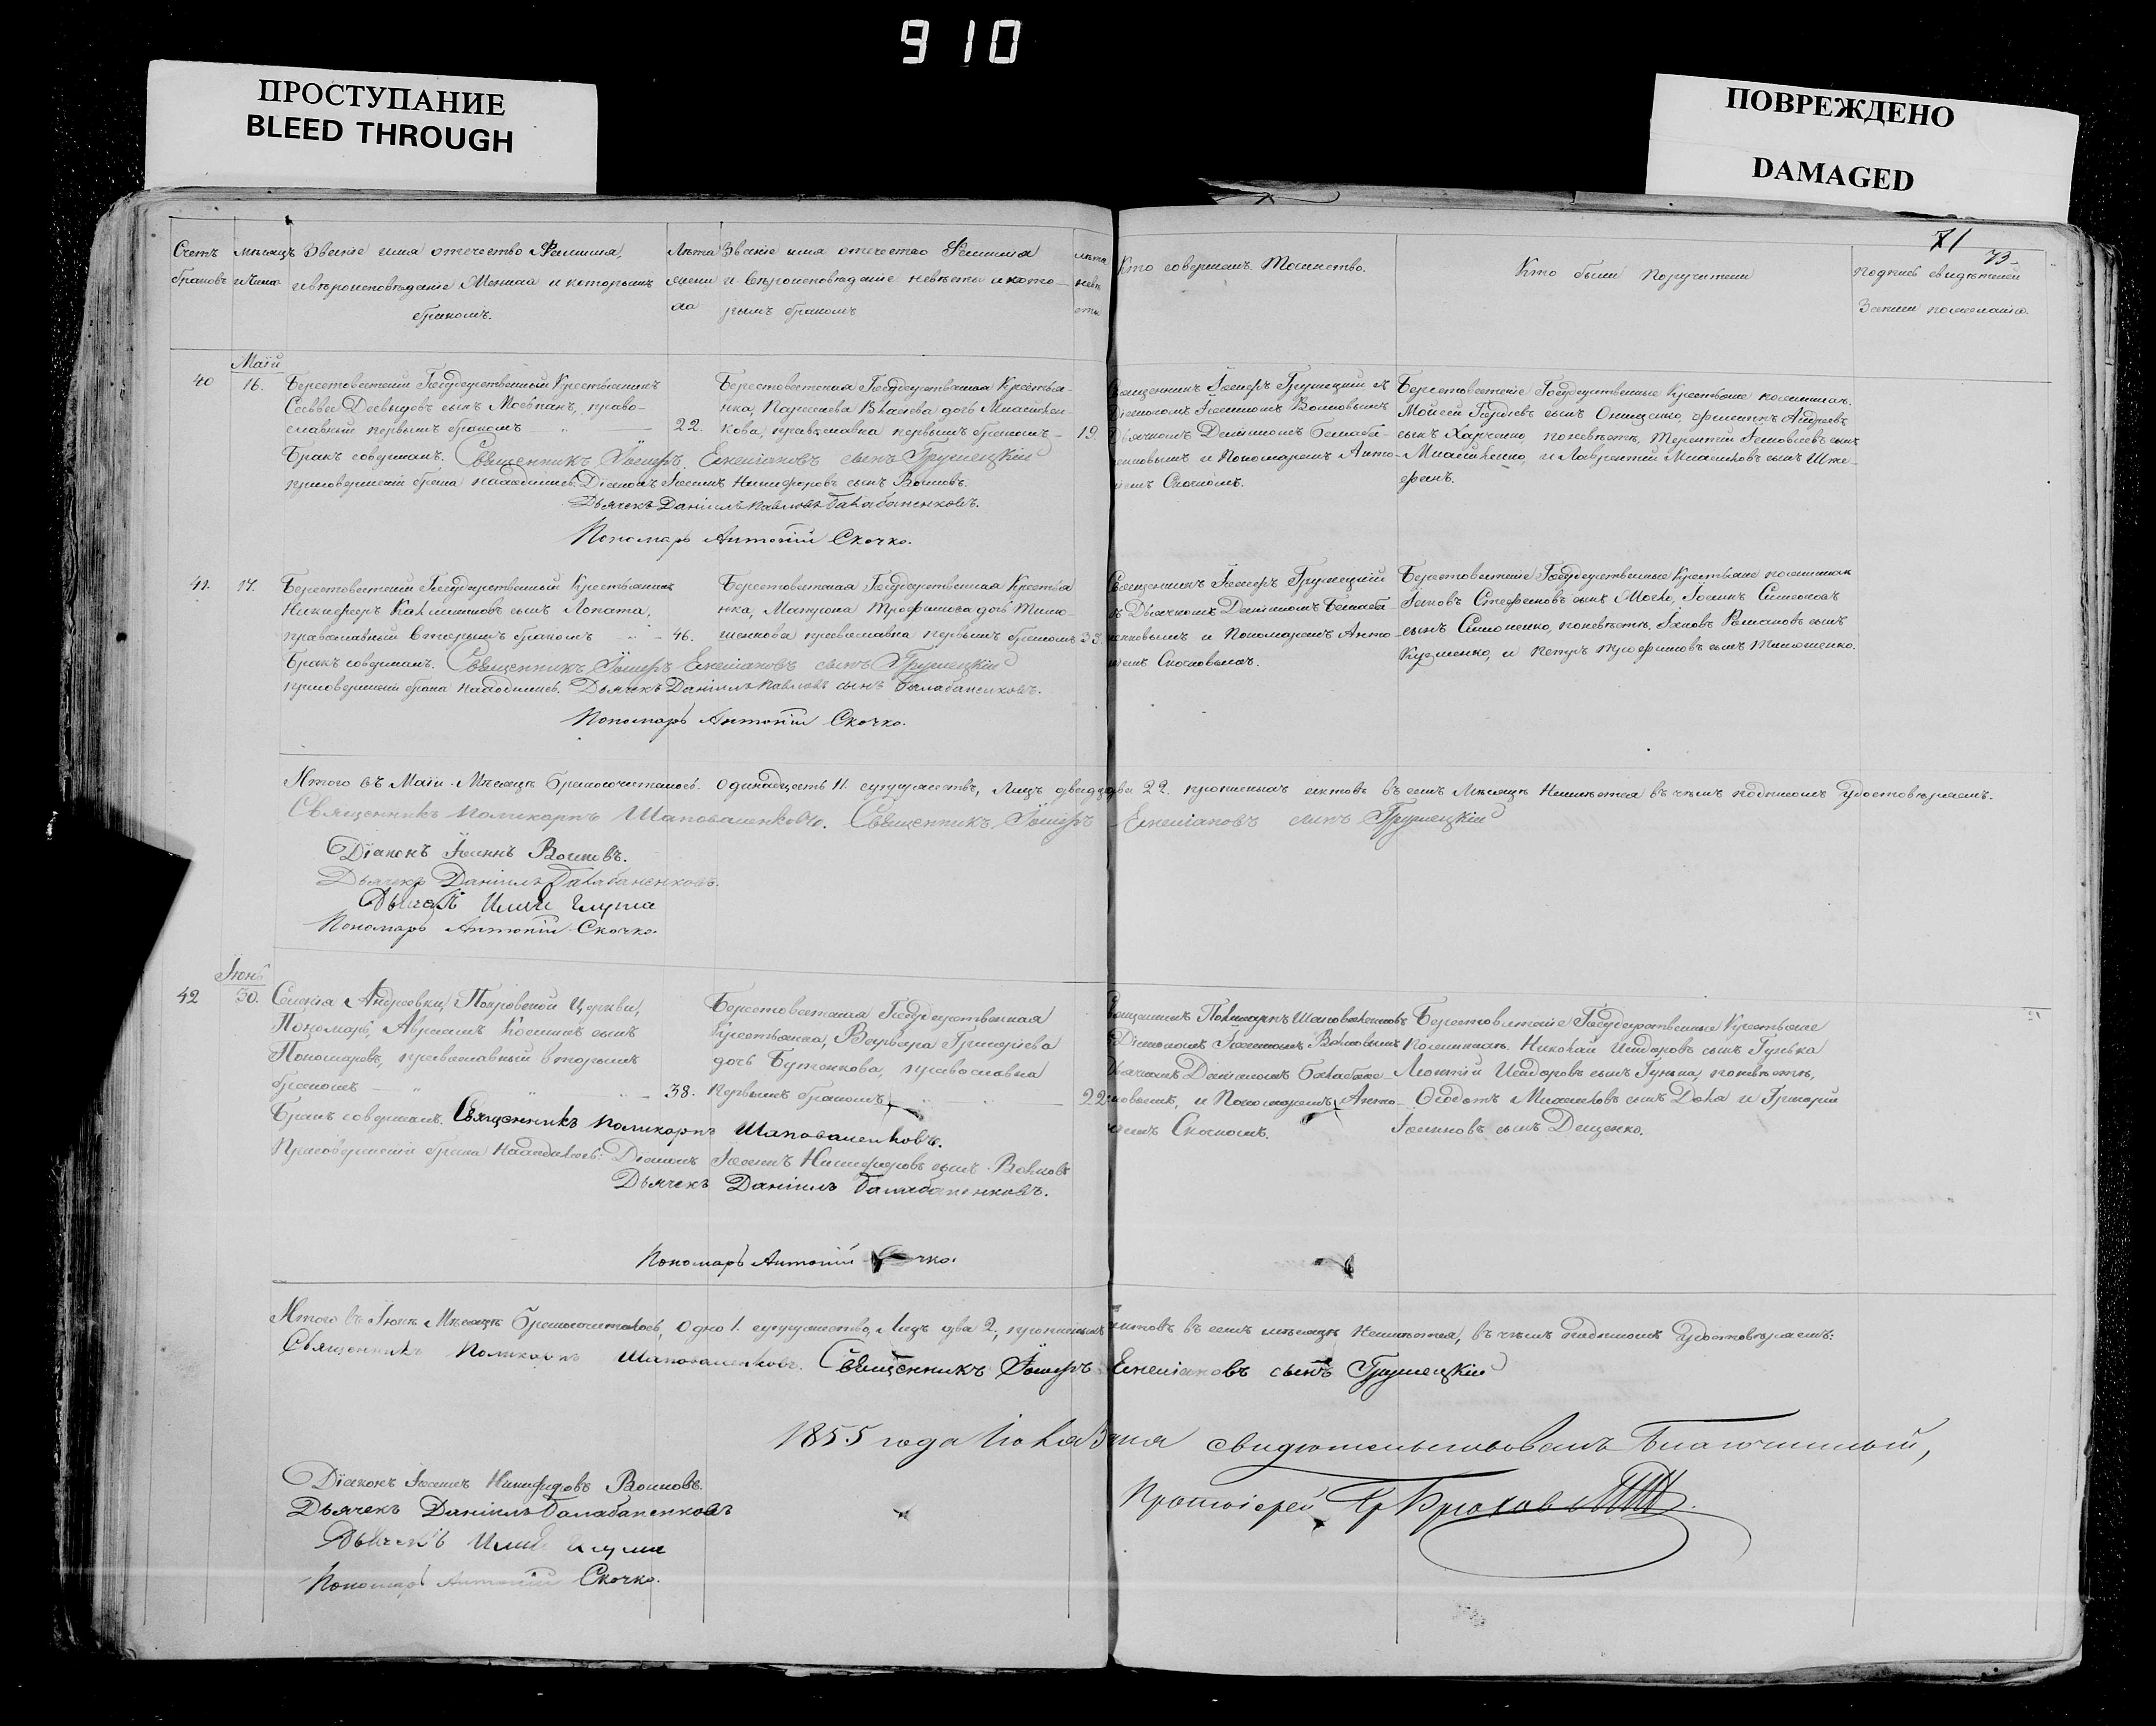 910
ПРОСТУПАНИЕ
BLEED THROUGH
ПОВРЕЖДЕНО
DAMAGED
71
73.
Счетъ
браковъ
мѣсяцъ
и число
Званіе имя отечество Фамилія,
и вѣроисповѣданіе Жениха и которымъ
бракомъ.
Лѣта
жени
ха
Званіе имя отечество Фамилія
и вѣроисповѣданіе невѣсты и кото-
рымъ бракомъ
лѣта
невѣ
сты
Кто совершалъ Таинство.
Кто были Поручители
Подпись свидѣтелей
Записи по желанію.
Маій
40
16.
Берестовеньки Государственный Крестьянинъ
Савва Давыдовъ сынъ право-
славный первымъ бракомъ
22.
Берестовенская Государственная Крестья-
нка, дочь
кова, православна первымъ бракомъ
19.
Священникъ Іосифъ Грушецкій
Діакономъ Іоанномъ Волковымъ
Дьячкомъ Даніиломъ Балаба-
ненковымъ и Пономаремъ Анто-
Берестовенскіе Государственные Крестьяне по женихѣ.
Моисей сынъ Онищенко, Филиппъ Андреевъ
сынъ Харченко, по невѣстѣ, Терентій сынъ
и Лаврентій сынъ
Бракъ совершалъ. Священникъ Іосифъ сынъ Грушецкій
при совершеніи брака находились: Діаконъ Іоаннъ Никифоровъ сынъ Волковъ.
Дьячекъ Даніилъ Павловъ Балабаненковъ.
Пономарь Антоній Скочко.
41.
17.
Государственный Крестьянинъ
Никифоръ сынъ Лопата,
православный вторымъ бракомъ
46.
Государственная Крестья
нка, Матрона Трофимова дочь Тимо-
шенкова православна первымъ бракомъ
33.
Священникъ Іосифъ Грушецкій
съ Дьячкомъ Даніиломъ Балаба-
ненковымъ и Пономаремъ Анто-
Государственные Крестьяне по женихѣ
Яковъ Стефановъ сынъ Іоаннъ Симеоновъ
сынъ Симоненко, по невѣстѣ. Іаковъ Романовъ сынъ
Кузменко, и Петръ Трофимовъ сынъ Тимошенко.
Бракъ совершалъ. Священникъ Іосифъ сынъ Грушецкій
при совершеніи брака находились. Дьячекъ Даніилъ Павловъ сынъ Балабаненковъ.
Пономарь Антоній Скочко.
Итого въ Маіи Мѣсяцѣ бракосочеталось. одинадцать 11. супружествъ, лицъ двадцать два 22. пропискахъ актовъ въ семъ Мѣсяцѣ Неимѣется въ чемъ подписомъ Удостовѣряемъ.
Священникъ Поликарпъ Шаповаленковъ. Священникъ Іосифъ сынъ Грушецкій
Діаконъ Іоаннъ Волковъ.
Дьячекъ Даніилъ Балабаненковъ.
Дьячекъ
Пономарь Антоній Скочко.
Іюнь
42
30.
Андреевки, Покровской Церкви,
Пономарь, Авраамъ сынъ
Пономаревъ, православный вторымъ
бракомъ
38.
Государственная
Крестьянка, Варвара Григоріева
дочь Бутенкова, православна
первымъ бракомъ
22
Священникъ Поликарпъ Шаповаленковъ
Діакономъ Іоанномъ Волковымъ
Дьячкомъ Даніиломъ Балабане-
нковымъ, и Пономаремъ Анто-
ніемъ Скочкомъ.
Государственные Крестьяне
По женихѣ. Николай Исидоровъ сынъ Гунька
Леонтій Исидоровъ сынъ Гунька, по невѣстѣ,
Федотъ Михайловъ сынъ и Григорій
Іоанновъ сынъ Дещенко.
Бракъ совершалъ. Священникъ Поликарпъ Шаповаленковъ.
При совершеніи брака Находились: Діаконъ Іоаннъ Никифоровъ сынъ Волковъ
Дьячекъ Даніилъ Балабаненковъ.
Пономарь Антоній Скочко.
Итого въ Іюнѣ Мѣсяцѣ бракосочеталось, одно 1. супружество, Лицъ два 2, прописныхъ актовъ въ семъ мѣсяцѣ Неимѣется, въ чемъ подписомъ Удостовѣряемъ:
Священникъ Поликарпъ Шаповаленковъ. Священникъ Іосифъ сынъ Грушецкій
1855 года Іюля 3 дня свидѣтельствовалъ Благочинный,
Протоіерей
Діаконъ Іоаннъ Никифоровъ Волковъ.
Дьячекъ Даніилъ Балабаненковъ
Дьячекъ
Пономарь Антоній Скочко.